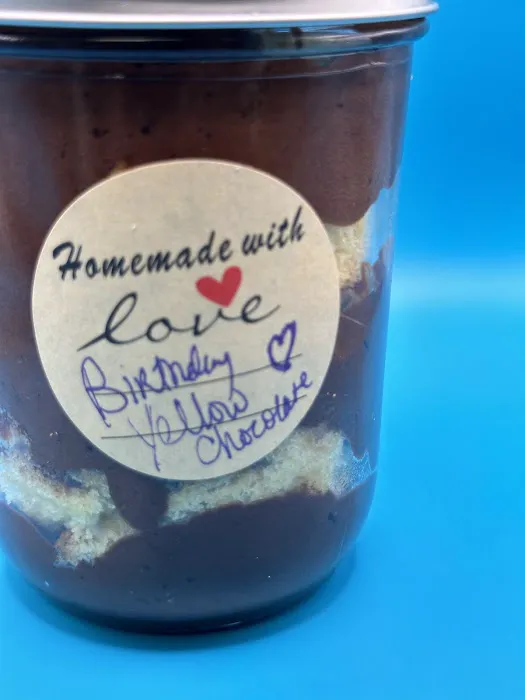 Homemade with
love
Birthday
Yellow
Chocolate